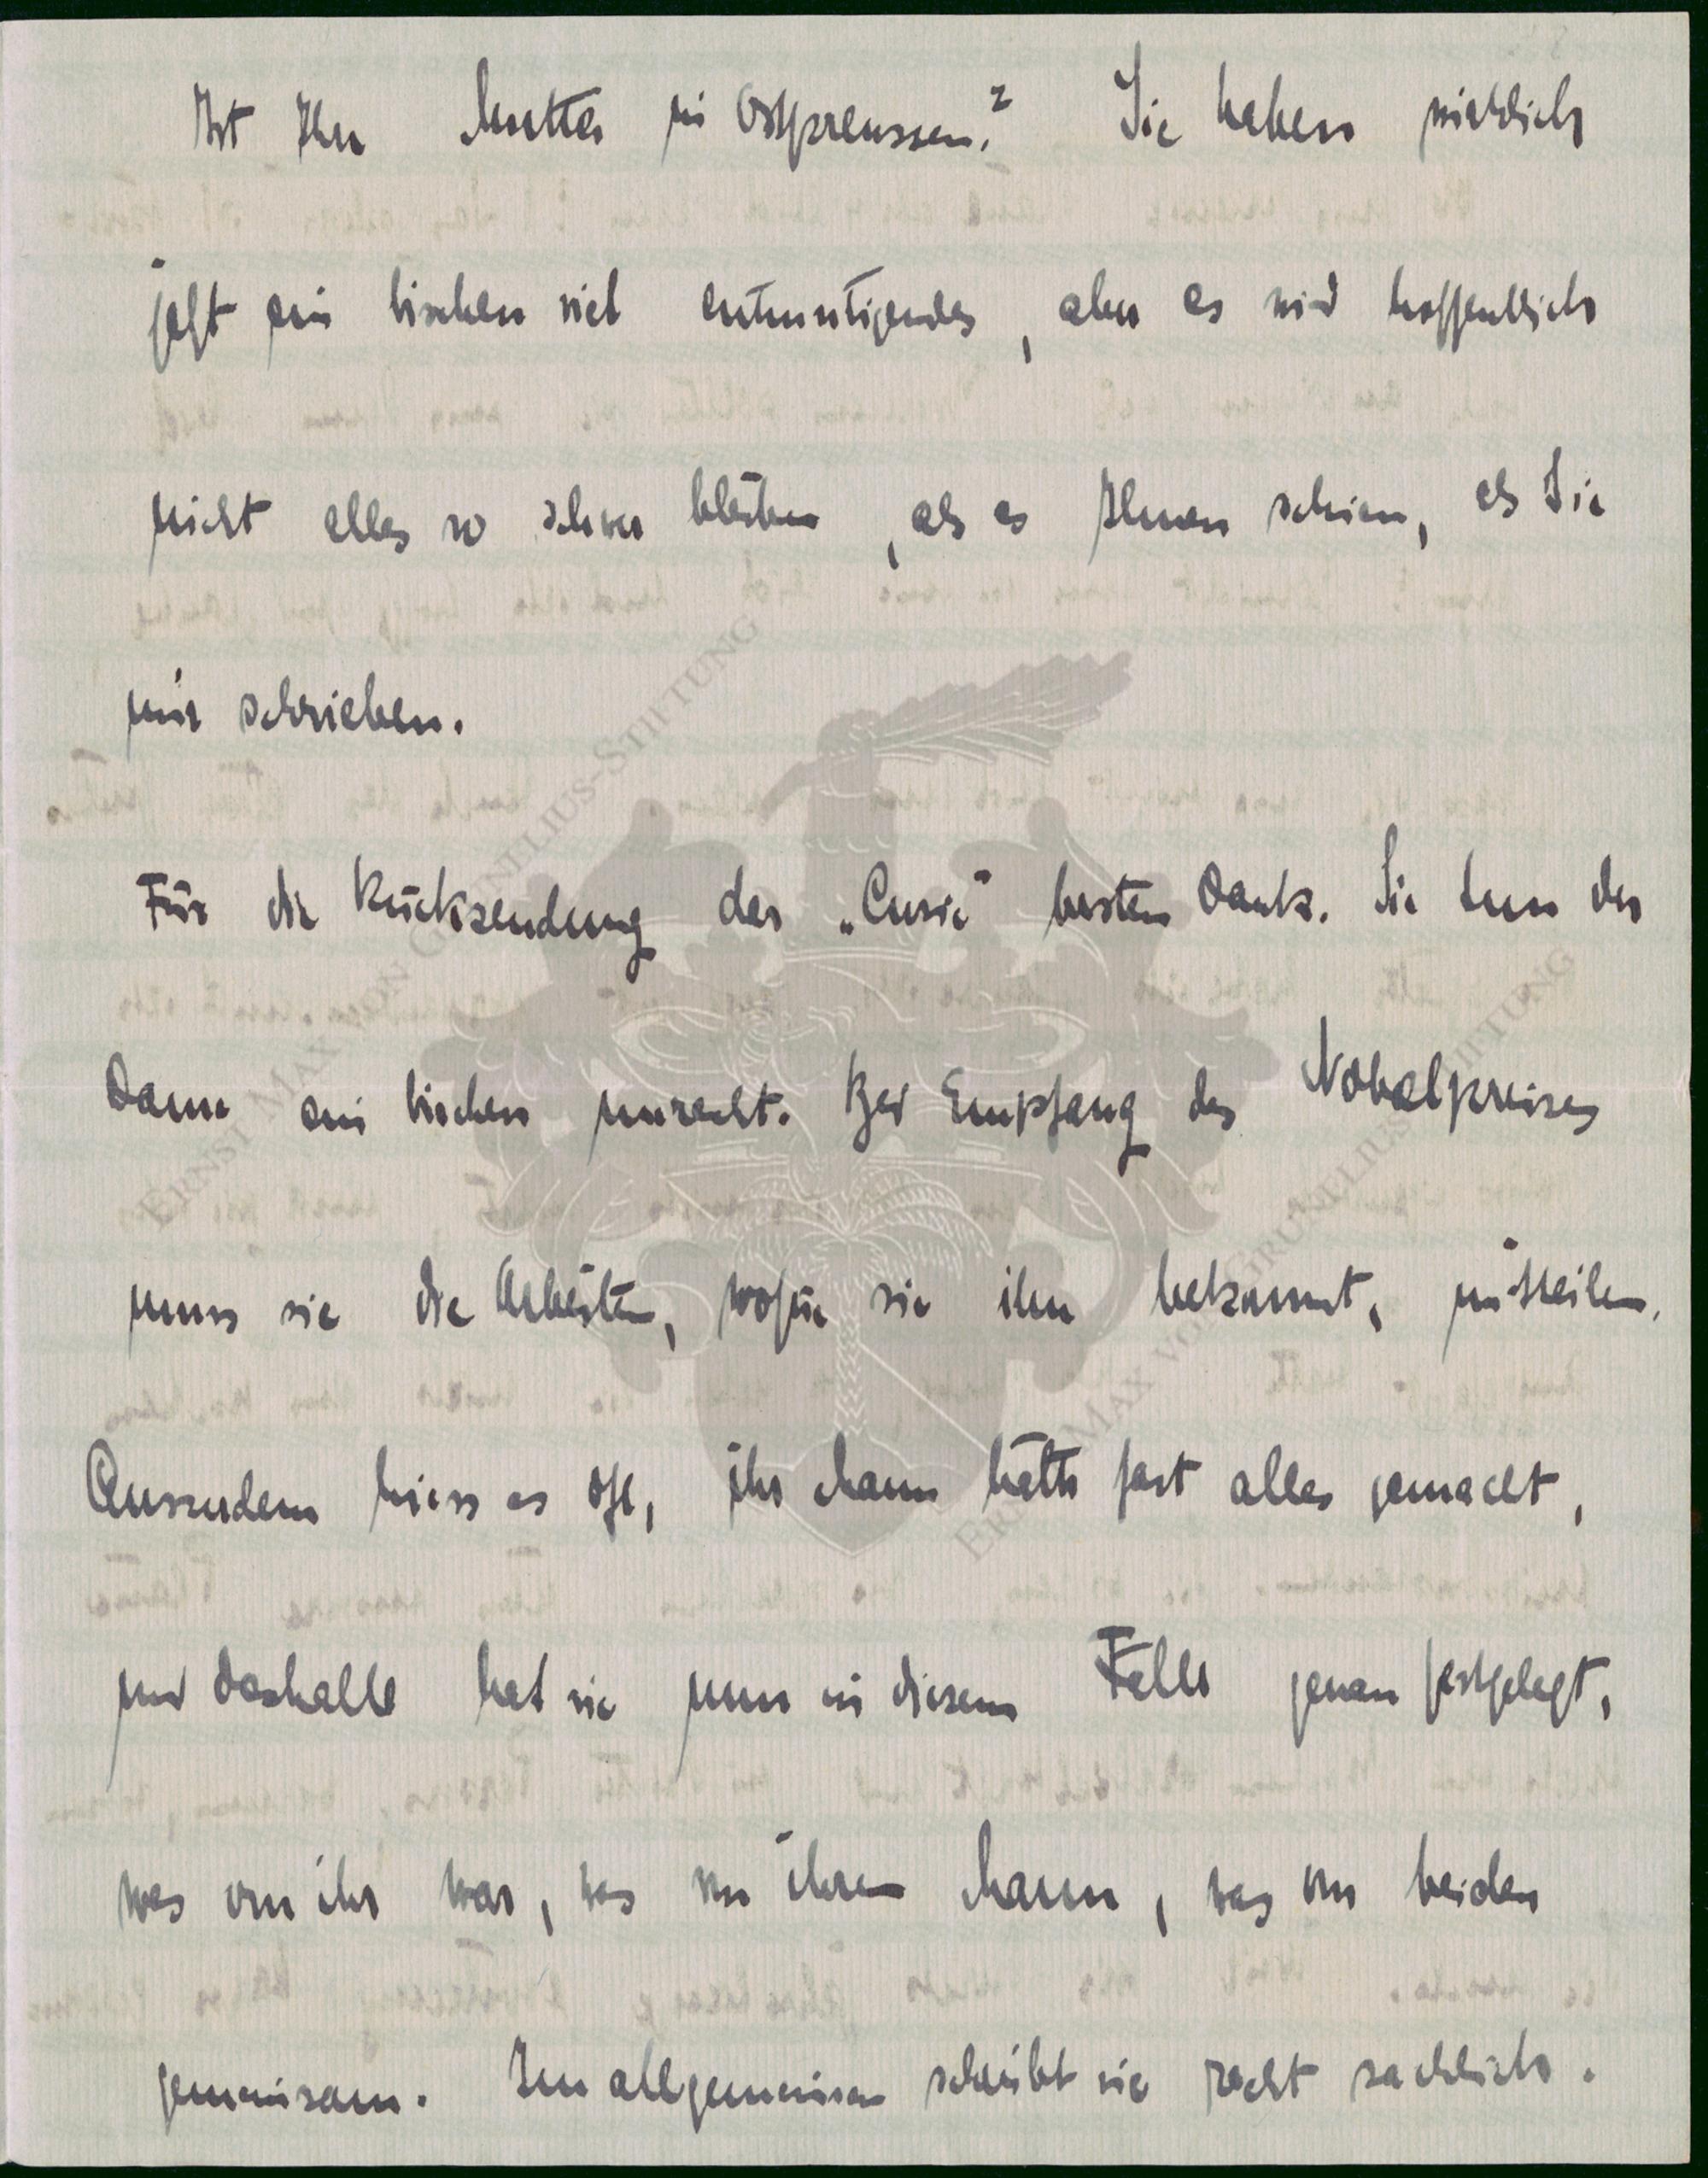 Ist Ihre Mutter in Ostpreussen? Sie haben wirklich
jetzt ein bischen viel entmutigendes, aber es wird hoffentlich
nicht alles so schwer bleiben, als es Ihnen schien, als Sie
mir schrieben.
Für die Rücksendung der „Curie“ besten Dank. Sie tun der
Dame ein bischen unrecht. Bei Empfang des Nobelpreises
muss sie die Arbeiten, wofür sie ihn bekommt, mitteilen.
Ausserdem hiess es oft, ihr Mann hätte fast alles gemacht,
und deshalb hat sie nun in diesem Falle genau festgelegt,
was von ihr war, was von ihrem Mann, was von beiden
gemeinsam. Im allgemeinen schreibt sie recht sachlich.
ERNST MAX VON GRUNELIUS-STIFTUNG
ERNST MAX VON GRUNELIUS-STIFTUNG